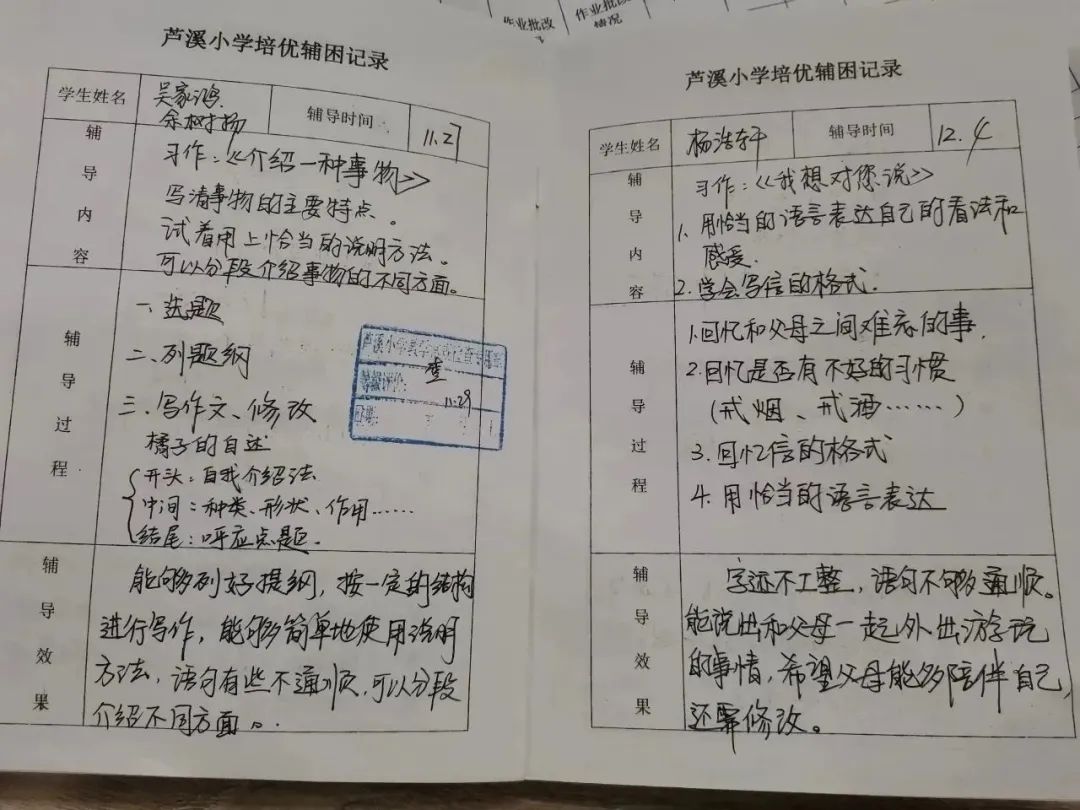 作业批改
作业批改
情况
芦溪小学培优辅困记录
学生姓名
吴家鸿
余树扬
辅导时间
11.27
辅导内容
习作:《介绍一种事物》
写清事物的主要特点。
试着用上恰当的说明方法。
可以分段介绍事物的不同方面。
辅导过程
一、选题
二、列题纲
三、写作文、修改
橘子的自述
开头:自我介绍法
中间:种类、形状、作用……
结尾:呼应点题.
芦溪小学教学
查
11.29
辅导效果
能够列好提纲,按一定的结构
进行写作,能够简单地使用说明
方法,语句有些不通顺,可以分段
介绍不同方面。
芦溪小学培优辅困记录
学生姓名
杨浩轩
辅导时间
12.4
辅导内容
习作:《我想对您说》
1.用恰当的语言表达自己的看法和
感受.
2.学会写信的格式.
辅导过程
1.回忆和父母之间难忘的事.
2.回忆是否有不好的习惯
(戒烟、戒酒……)
3.回忆信的格式
4.用恰当的语言表达
辅导效果
字迹不工整,语句不够通顺。
能说出和父母一起外出游玩
的事情,希望父母能多陪伴自己,
还需修改。